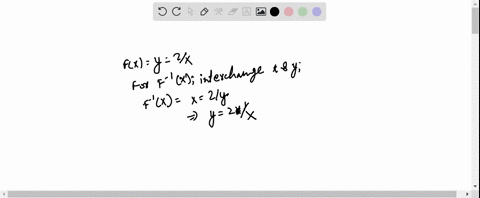 F(x) = y = 2/x
For F⁻¹(x); interchange x & y;
F⁻¹(x) = x = 2/y
⇒ y = 2/x